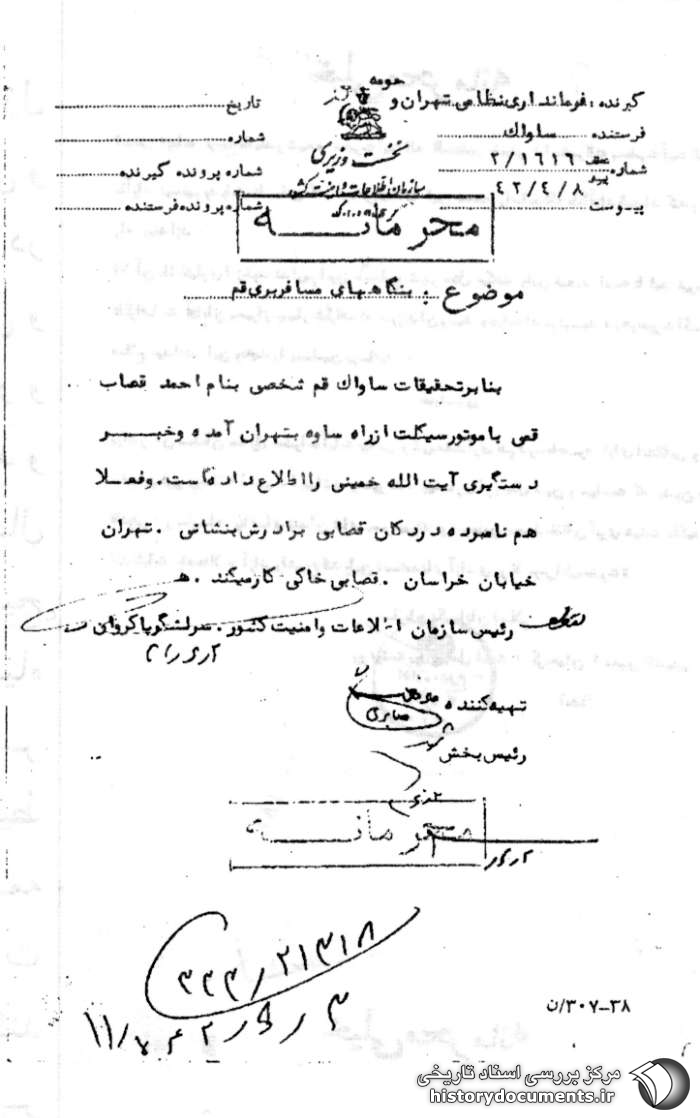 حومه
گیرنده : فرمانداری نظامی تهران و
فرستنده ساواک
شماره ۳/۱۶۱۶
۴۲/۴/۸
پیوست
تاریخ
شماره
شماره پرونده گیرنده
شماره پرونده فرستنده
نخست وزیری
سازمان اطلاعات و امنیت کشور
محرمانه
موضوع : بنگاههای مسافربری قم
بنابر تحقیقات ساواک قم شخصی بنام احمد قصاب
قمی با موتورسیکلت ازراه ساوه بتهران آمده وخبر
دستگیری آیت الله خمینی را اطلاع داده است . وفعلا
هم نامبرده دردکان قصابی برادرش بنشانی . تهران
خیابان خراسان . قصابی خاکی کارمیکند . ه
رئیس سازمان اطلاعات وامنیت کشور . سرلشگر پاکروان
تهیه کننده
صابری
رئیس بخش
محرمانه
۳۳۳/۲۱۳۱۸
۳۸-۳۰۷/ن
مرکز بررسی اسناد تاریخی
historydocuments.ir